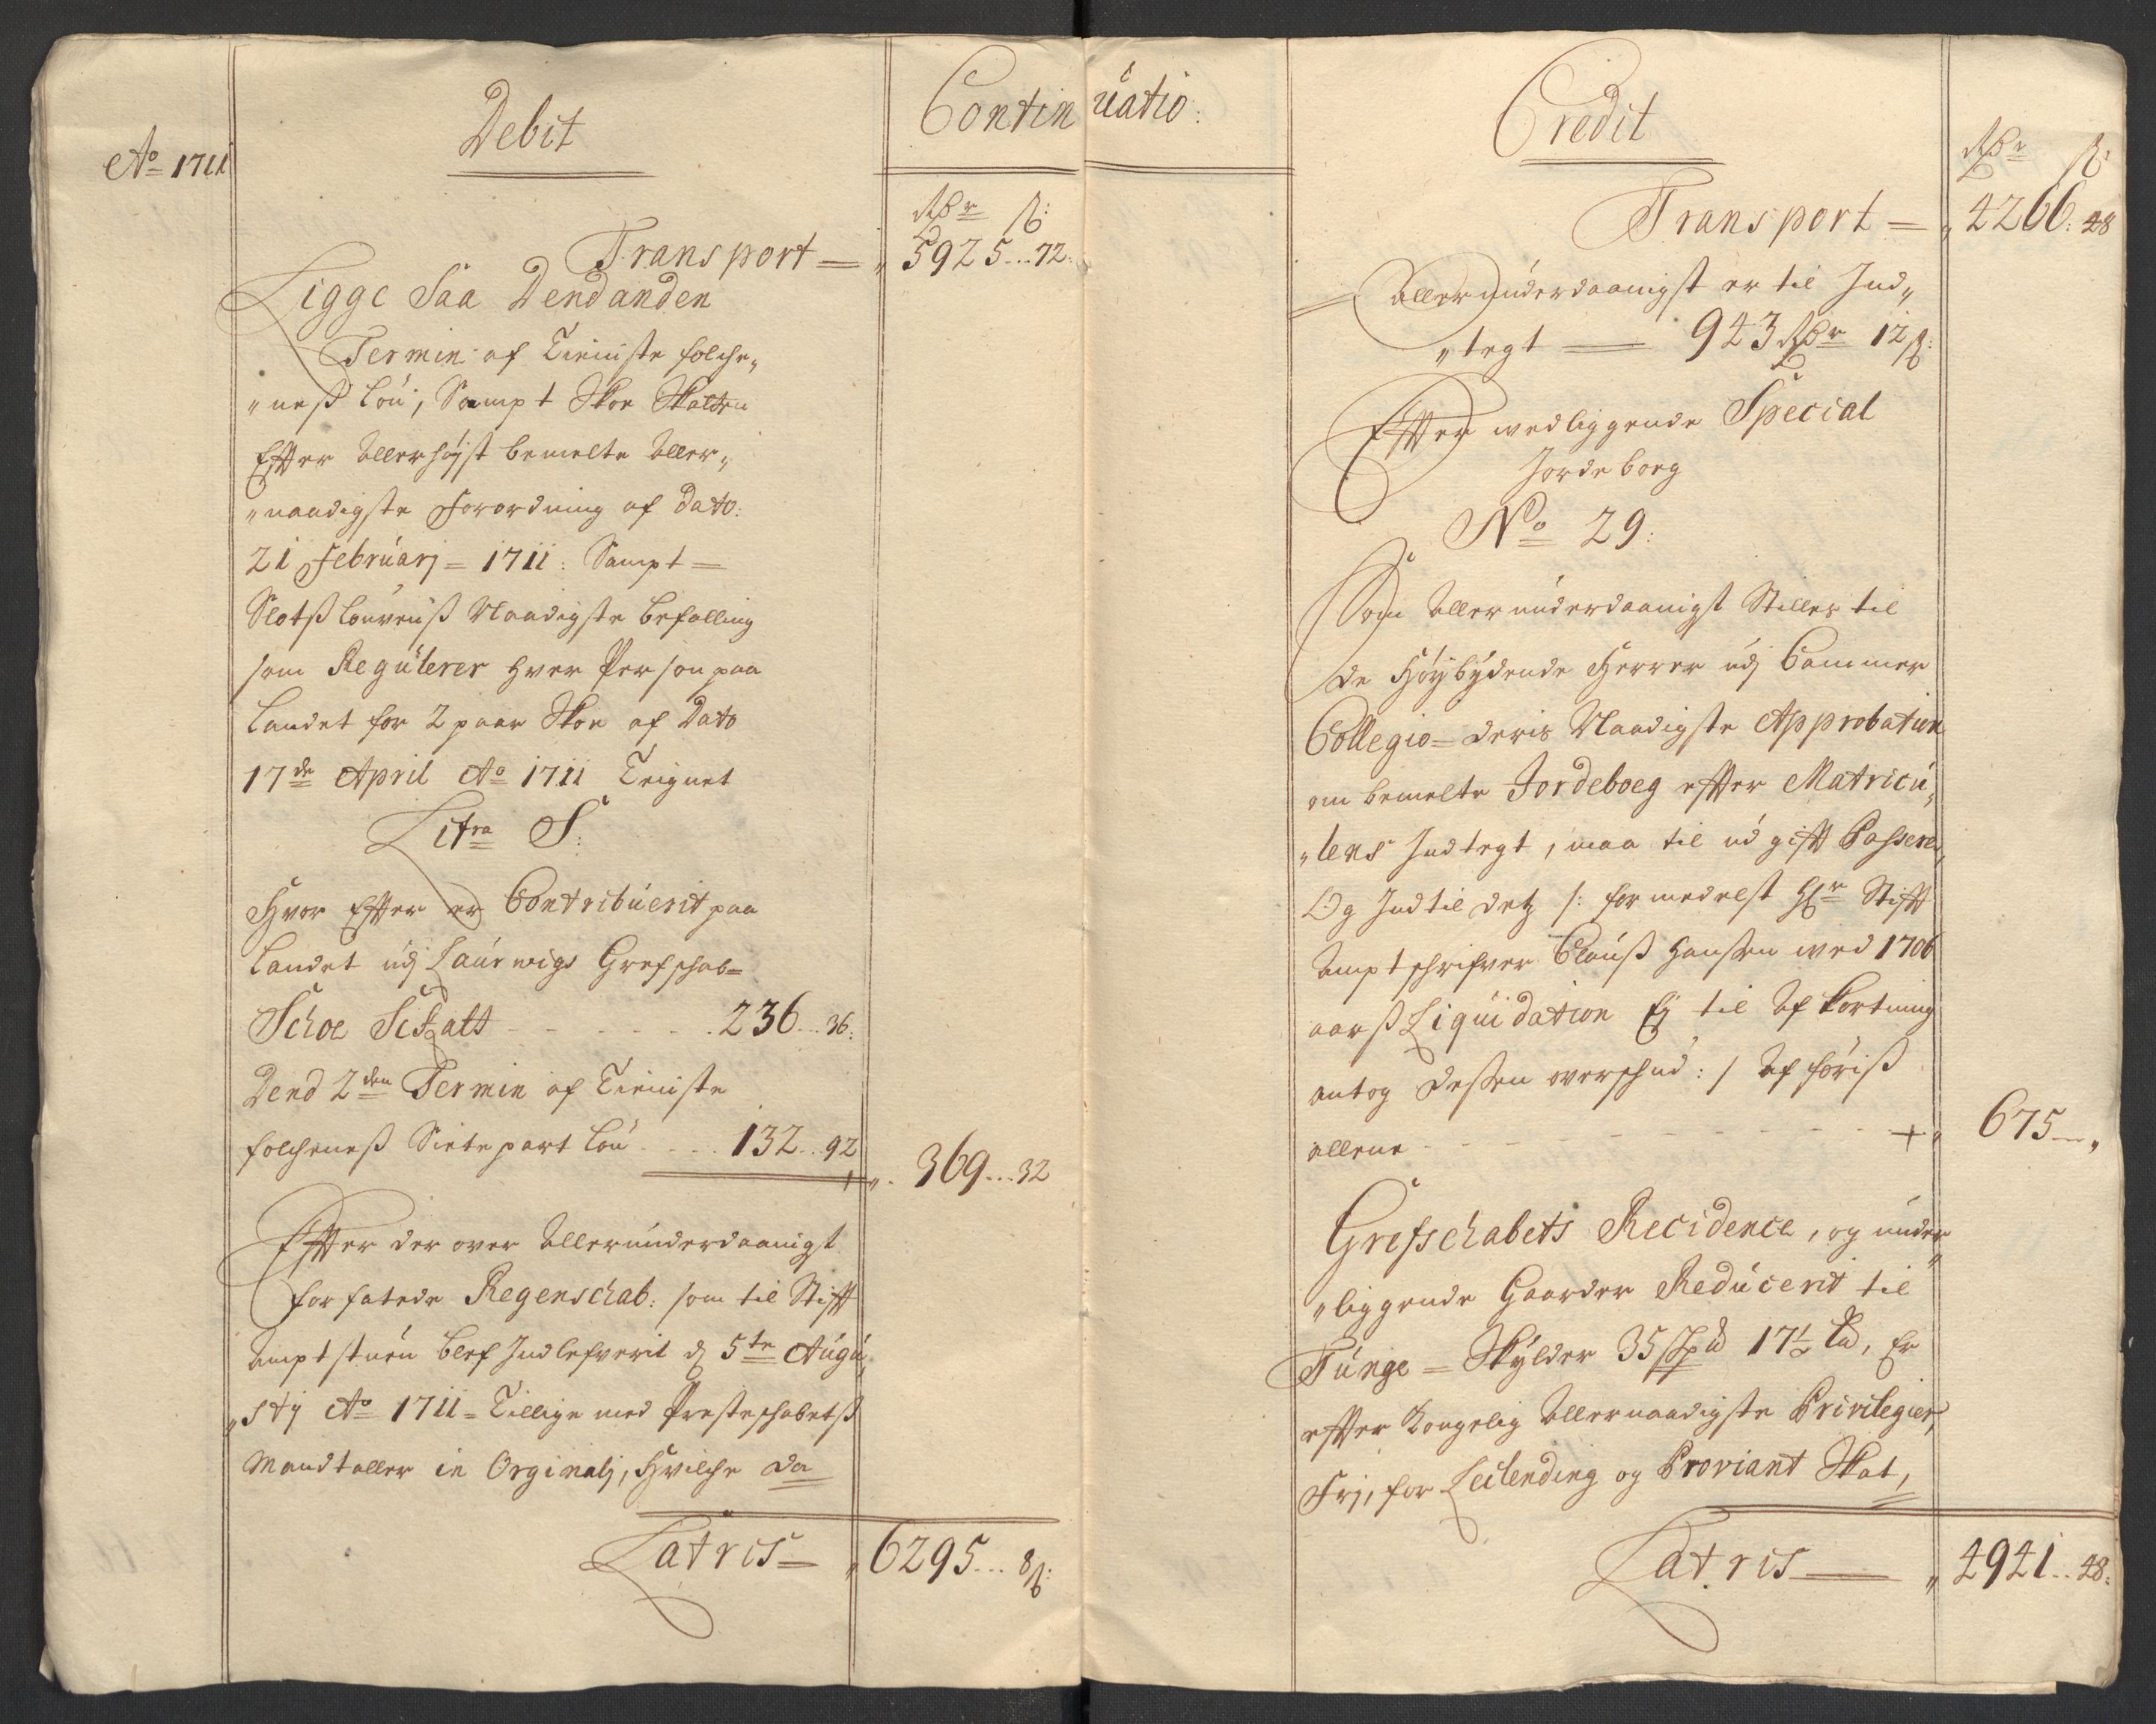 Ao 1711
Debit
Continuatio:
Rdr ß:
Transport = 5925...72:
Ligge Saa Dend anden
Termin af Tieniste folche„
„neß Løn, Sampt Skoe Skatten
Effter Allerhøyst bemelte Aller„
„naadigste Forordning af Dato:
21 Februarj = 1711: Sampt =
Slotß Lovenß Naadigste befalling
som Regulerer hver Person paa
Landet for 2 paar Skoe af Dato
17de April Ao 1711 Teignet
Litra S:
Hvor Effter er Contribuerit paa
Landet udj Laurwigs Grefschab=
Schoe Schatt - - - - - 236...36:
Dend 2den Termin af Tieniste
folcheneß Siette part Løn - - - 132..92
369...32
Effter der over Allerunderdaanigst
forfatede Regenschab: som til Stifft
Amptstuen blef Indlefverit d 5te Augu„
„stj Ao 1711 = Tillige med Presteschabetß
Mandtaller in Orginalj, Hvilche da
Latris = 6295...8ß:
Credit
Rdr ß
Transport = 4266:48
Allerunderdaanigst er til Ind„
„tegt — 943 Rdr 12ß:
Effter vedliggende Special
Jordeboeg
No 29:
Som Allerunderdaanigst Stilles til
de Høybydende Herrer udj Cammer
Collegio = deris Naadigste Approbation
om bemelte Jordeboeg effter Matricu„
„lens Indtegt, maa til udgifft Passere,
Og Indtil detz /: formedelst Hr Stifft
Amptschrifver Clauß Hanßen ved 1706
aarß Liquidation Ej til Afkortning
antog deßen overschud :/ Afføriß
allene - - - - - - - 675...„
Grefschabets Recidence, og under„
„liggende Gaarder Reducerit til
Tunge = Skylder 35 Skp̃d 17½ Ld, Er
effter Kongelig Allernaadigste Privilegier,
Frj, for Leilending og Proviant Skat,
Latris — 4941..48: